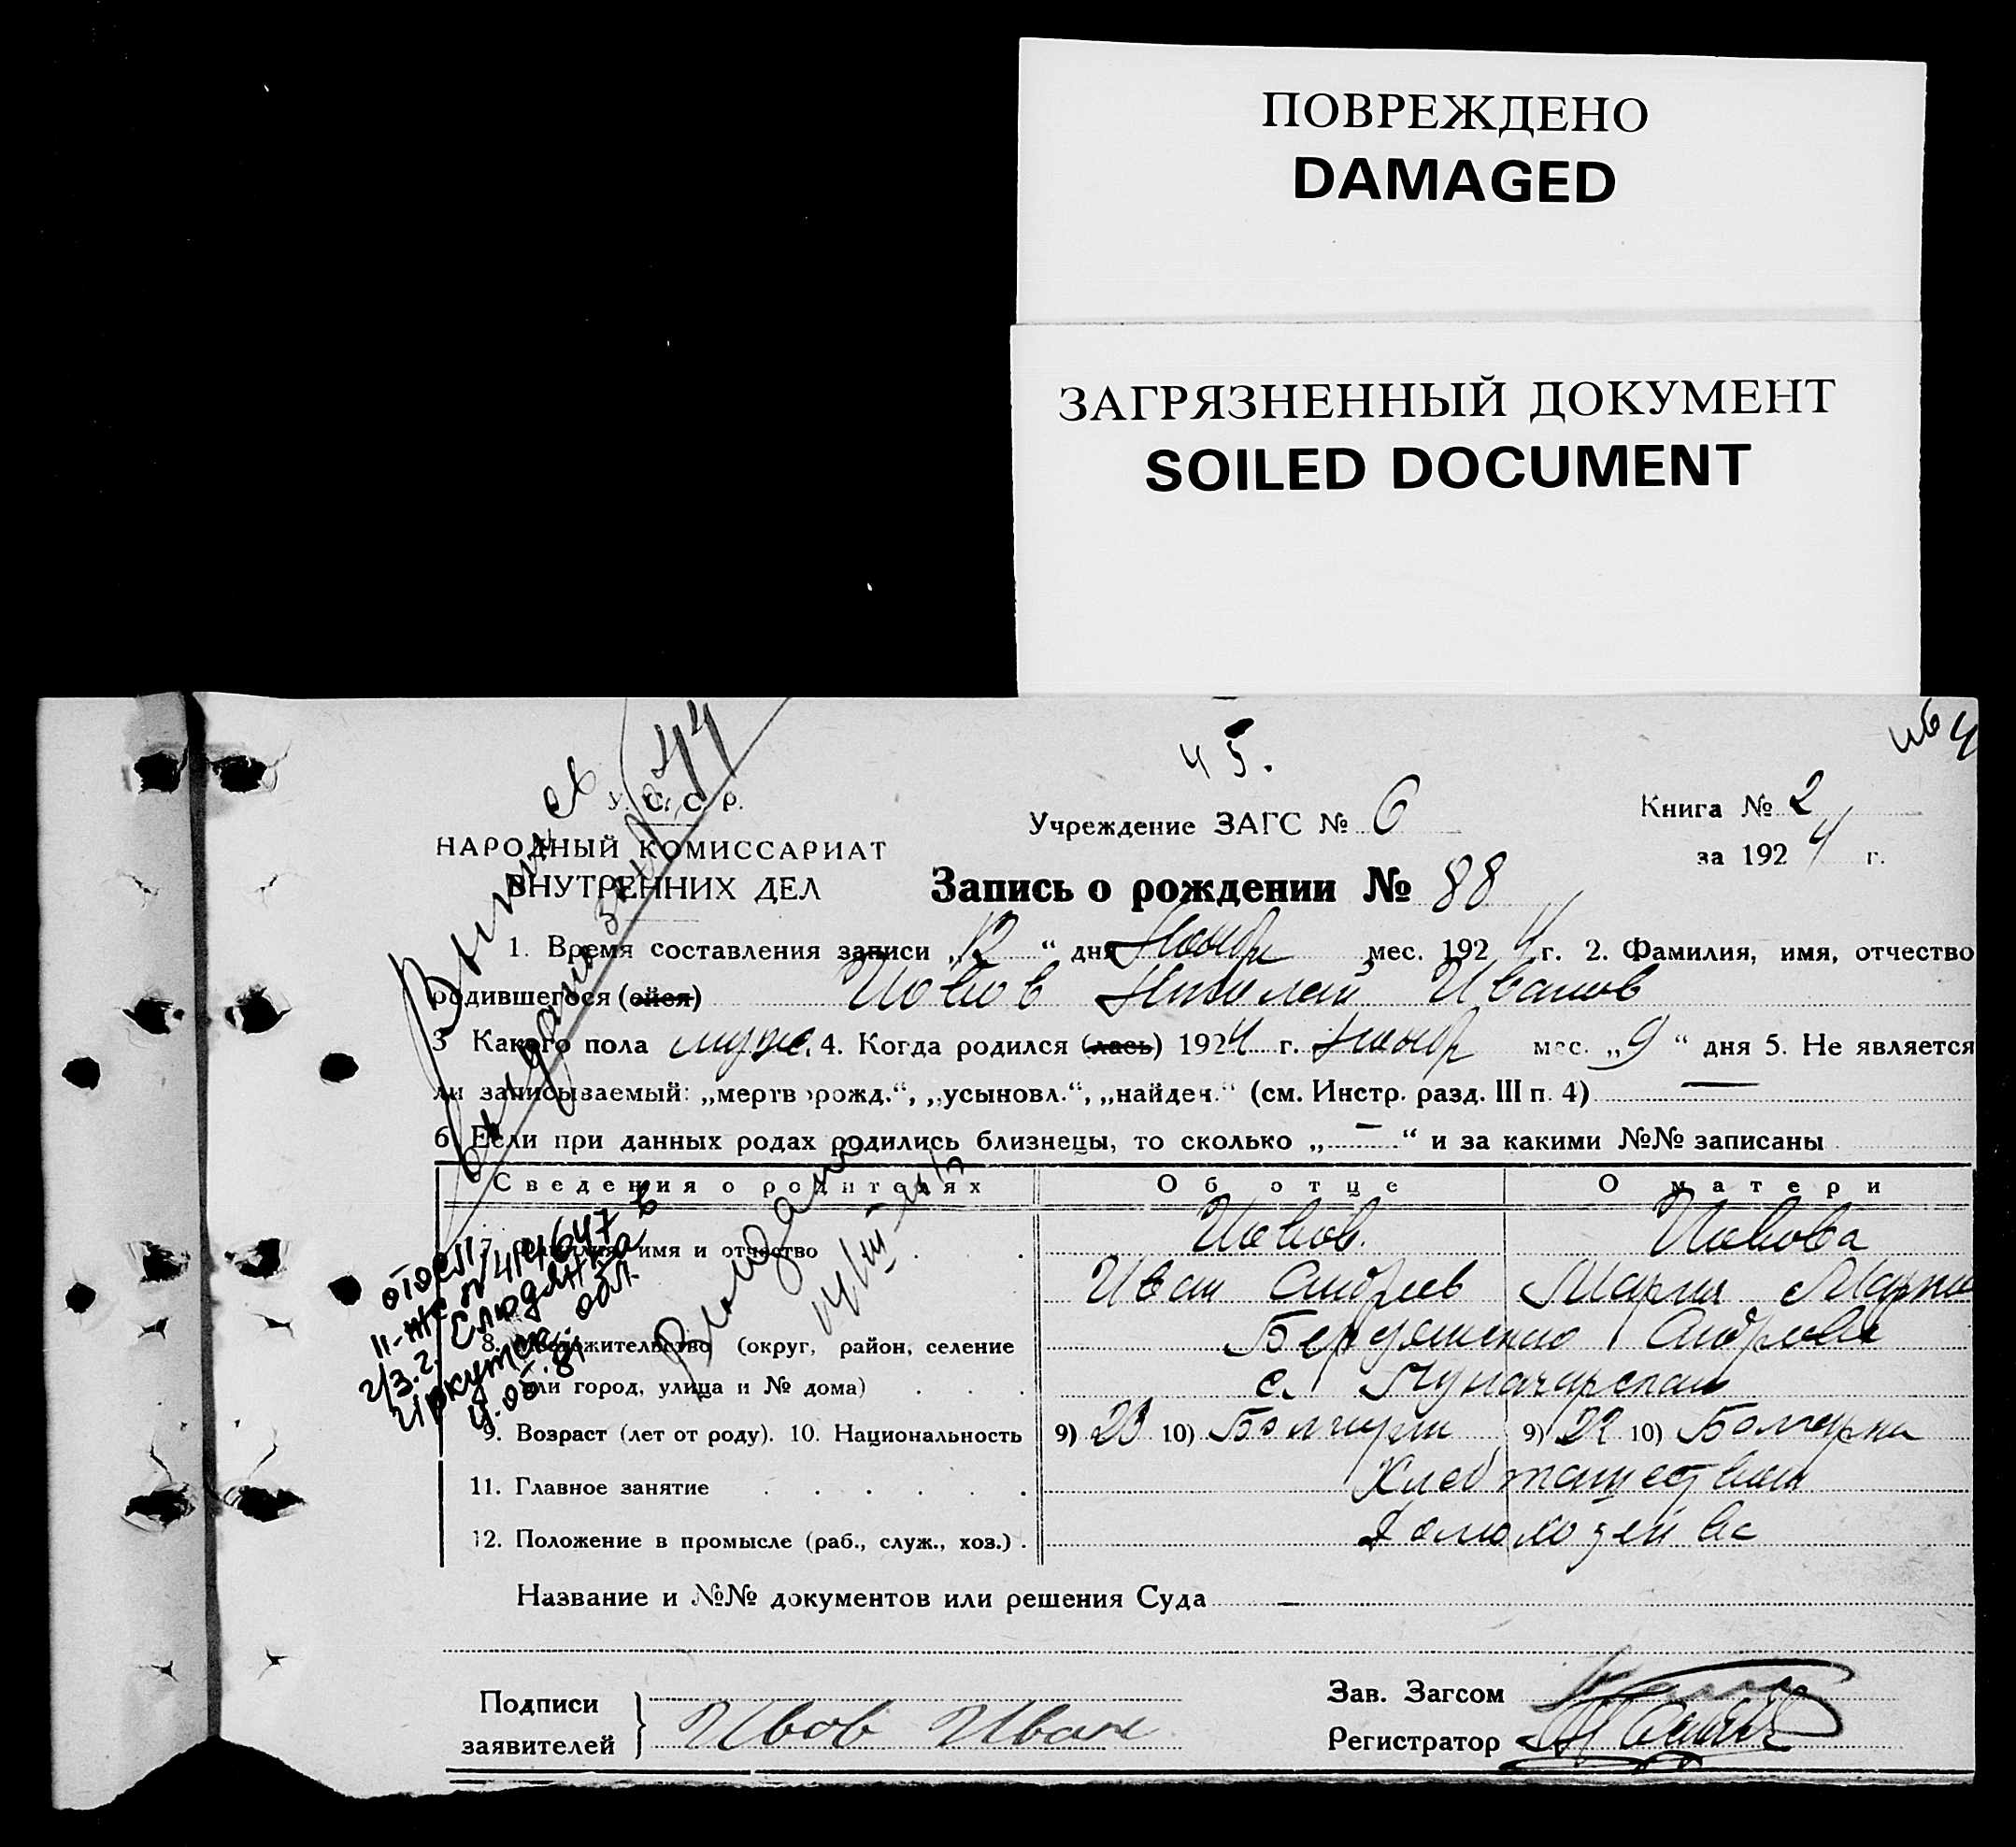 ПОВРЕЖДЕНО
DAMAGED
ЗАГРЯЗНЕННЫЙ ДОКУМЕНТ
SOILED DOCUMENT
45.
У. С. С. Р.
НАРОДНЫЙ КОМИССАРИАТ
ВНУТРЕННИХ ДЕЛ
Учреждение ЗАГС № 6
Книга № 2
за 1924 г.
Запись о рождении № 88
1. Время составления записи „12“ дня Ноябр мес. 1924 г. 2. Фамилия, имя, отчество
родившегося (ойся) Иовов Николай Иванов
3 Какого пола мужс. 4. Когда родился (лась) 1924 г. Ноябр мес. „9“ дня 5. Не является
ли записываемый: „мертворожд.“, „усыновл.“, „найден.“ (см. Инстр. разд. III п. 4) —
6. Если при данных родах родились близнецы, то сколько „—“ и за какими №№ записаны
Сведения о родителях Об отце О матери
7. Фамилия, имя и отчество Иовов. Иовова
Иван Андреев Мария
8. Местожительство (округ, район, селение
или город, улица и № дома) с.
9. Возраст (лет от роду). 10. Национальность 9) 23 10) Болгарин 9) 22 10) Болгарка
11. Главное занятие
12. Положение в промысле (раб., служ., хоз.)
Название и №№ документов или решения Суда —
Подписи
заявителей Ивов Иван
Зав. Загсом
Регистратор
Выдано
II-ЖС № 414647 в
г/з. г. Слюдянка
Иркутской обл.